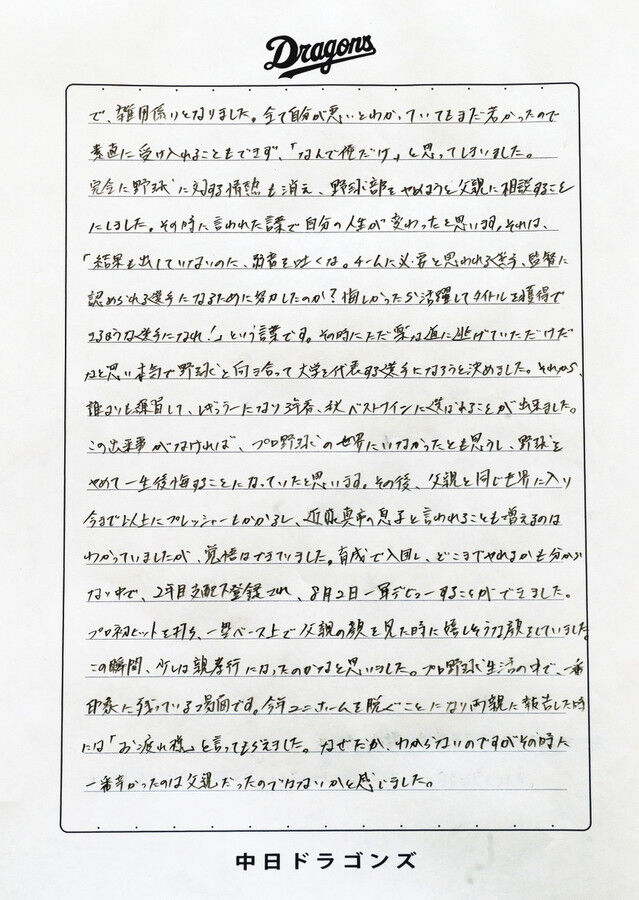 Dragons
で、雑用係りとなりました。全て自分が悪いとわかっていてもまだ若かったので
素直に受け入れることもできず、「なんで俺だけ」と思ってしまいました。
完全に野球に対する情熱も消え、野球部をやめようと父親に相談すること
にしました。その時に言われた言葉で自分の人生が変わったと思います。それは、
「結果も出していないのに、弱音を吐くな。チームに必要と思われる選手、監督に
認められる選手になるために努力したのか？悔しかったら活躍してタイトルを獲得で
きるような選手になれ！」という言葉です。その時にただ楽な道に逃げていただけだ
なと思い本気で野球と向き合って大学を代表する選手になろうと決めました。それから、
誰よりも練習して、レギュラーになり3年春、秋ベストナインに選ばれることが出来ました。
この出来事がなければ、プロ野球の世界にいなかったとも思うし、野球を
やめて一生後悔することになっていたと思います。その後、父親と同じ世界に入り
今まで以上にプレッシャーもかかるし、近藤真市の息子と言われることも増えるのは
わかっていましたが、覚悟はできていました。育成で入団し、どこまでやれるかも分から
ない中で、2年目支配下登録され、8月2日一軍デビューすることができました。
プロ初ヒットを打ち、一塁ベース上で父親の顔を見た時に嬉しそうな顔をしていました。
この瞬間、少しは親孝行になったのかなと思いました。プロ野球生活の中で、一番
印象に残っている場面です。今年ユニホームを脱ぐことになり両親に報告した時
には「お疲れ様」と言ってもらえました。なぜだか、わからないのですがその時に
一番辛かったのは父親だったのではないかと感じました。
中日ドラゴンズ